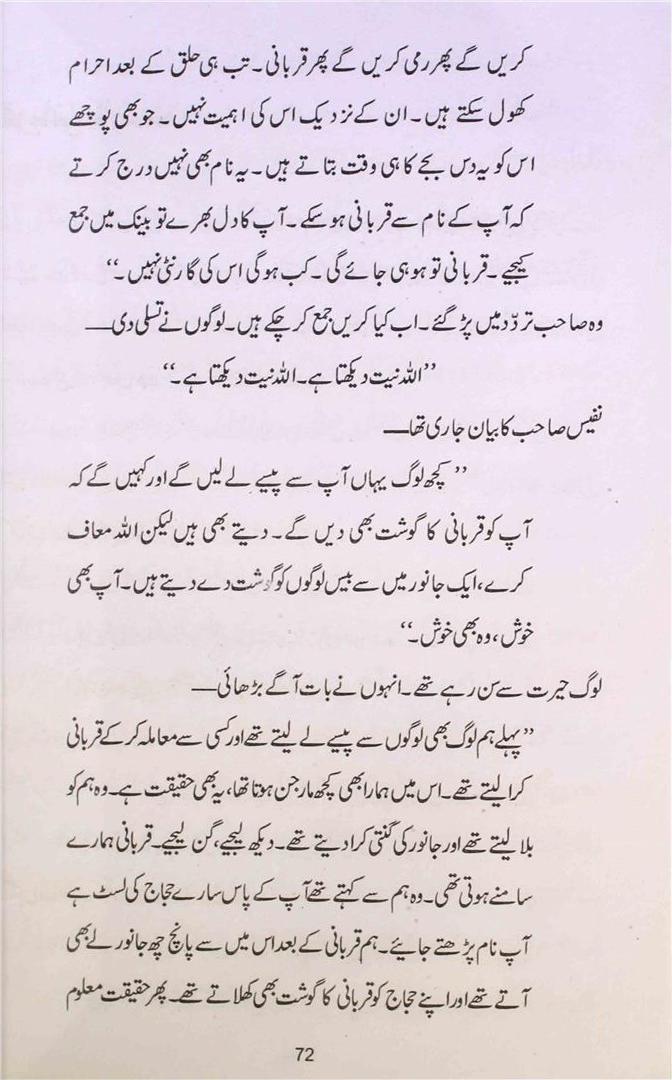 کریں گے پھر رمی کریں گے پھر قربانی۔ تب ہی حلق کے بعد احرام
کھول سکتے ہیں۔ ان کے نزدیک اس کی اہمیت نہیں۔ جو بھی پوچھے
اس کو یہ دس بجے کا ہی وقت بتاتے ہیں۔ یہ نام بھی نہیں درج کرتے
کہ آپ کے نام سے قربانی ہو سکے۔ آپ کا دل بھرے تو بینک میں جمع
کیجیے۔ قربانی تو ہو ہی جائے گی۔ کب ہوگی اس کی گارنٹی نہیں۔“
وہ صاحب تردّد میں پڑ گئے۔ اب کیا کریں جمع کر چکے ہیں۔ لوگوں نے تسلی دی—
”اللہ نیت دیکھتا ہے۔ اللہ نیت دیکھتا ہے۔“
نفیس صاحب کا بیان جاری تھا—
”کچھ لوگ یہاں آپ سے پیسے لے لیں گے اور کہیں گے کہ
آپ کو قربانی کا گوشت بھی دیں گے۔ دیتے بھی ہیں لیکن اللہ معاف
کرے، ایک جانور میں سے بیس لوگوں کو گوشت دے دیتے ہیں۔ آپ بھی
خوش، وہ بھی خوش۔“
لوگ حیرت سے سن رہے تھے۔ انہوں نے بات آگے بڑھائی—
”پہلے ہم لوگ بھی لوگوں سے پیسے لے لیتے تھے اور کسی سے معاملہ کر کے قربانی
کرا لیتے تھے۔ اس میں ہمارا بھی کچھ مارجن ہوتا تھا، یہ بھی حقیقت ہے۔ وہ ہم کو
بلا لیتے تھے اور جانور کی گنتی کرا دیتے تھے۔ دیکھ لیجیے، گن لیجیے۔ قربانی ہمارے
سامنے ہوتی تھی۔ وہ ہم سے کہتے تھے آپ کے پاس سارے حجاج کی لسٹ ہے
آپ نام پڑھتے جائیے۔ ہم قربانی کے بعد اس میں سے پانچ چھ جانور لے بھی
آتے تھے اور اپنے حجاج کو قربانی کا گوشت بھی کھلاتے تھے۔ پھر حقیقت معلوم
72